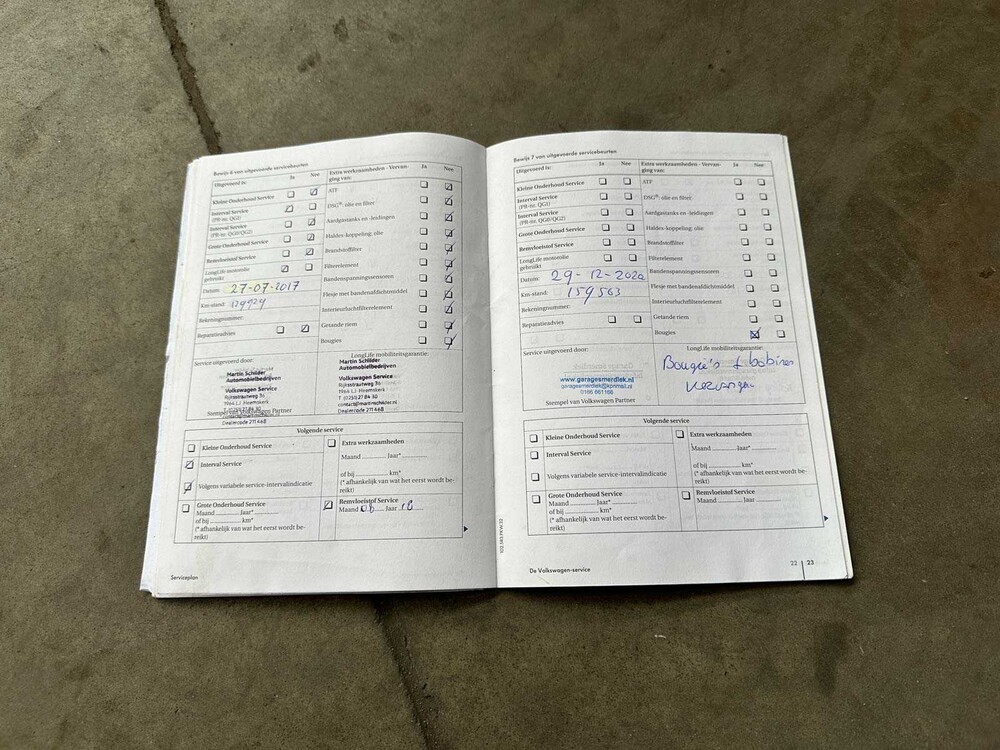 Bewijs 6 van uitgevoerde servicebeurten
Uitgevoerd is:
Ja Nee
Kleine Onderhoud Service
Interval Service
(PR-nr. QG1)
Interval Service
(PR-nr. QG0/QG2)
Grote Onderhoud Service
Remvloeistof Service
LongLife motorolie
gebruikt
Datum: 27-07-2017
Km-stand:
Rekeningnummer:
Reparatieadvies
Extra werkzaamheden - Vervan-
ging van:
Ja Nee
ATF
DSG®: olie en filter
Aardgastanks en -leidingen
Haldex-koppeling: olie
Brandstoffilter
Filterelement
Bandenspanningssensoren
Flesje met bandenafdichtmiddel
Interieurluchtfilterelement
Getande riem
Bougies
Service uitgevoerd door:
Martin Schilder
Automobielbedrijven
Volkswagen Service
Rijksstraatweg 36
1964 LJ Heemskerk
T (0251) 27 84 30
contact@martinschilder.nl
Dealercode 21146B
Stempel van Volkswagen Partner
LongLife mobiliteitsgarantie:
Martin Schilder
Automobielbedrijven
Volkswagen Service
Rijksstraatweg 36
1964 LJ Heemskerk
T (0251) 27 84 30
contact@martinschilder.nl
Dealercode 21146B
Volgende service
Kleine Onderhoud Service
Interval Service
Volgens variabele service-intervalindicatie
Grote Onderhoud Service
Maand ........ Jaar* ........
of bij ........ km*
(* afhankelijk van wat het eerst wordt be-
reikt)
Extra werkzaamheden
Maand ........ Jaar* ........
of bij ........ km*
(* afhankelijk van wat het eerst wordt be-
reikt)
Remvloeistof Service
Maand 06 Jaar 18
Serviceplan
Bewijs 7 van uitgevoerde servicebeurten
Uitgevoerd is:
Ja Nee
Kleine Onderhoud Service
Interval Service
(PR-nr. QG1)
Interval Service
(PR-nr. QG0/QG2)
Grote Onderhoud Service
Remvloeistof Service
LongLife motorolie
gebruikt
Datum: 29-12-2020
Km-stand: 159563
Rekeningnummer:
Reparatieadvies
Extra werkzaamheden - Vervan-
ging van:
Ja Nee
ATF
DSG®: olie en filter
Aardgastanks en -leidingen
Haldex-koppeling: olie
Brandstoffilter
Filterelement
Bandenspanningssensoren
Flesje met bandenafdichtmiddel
Interieurluchtfilterelement
Getande riem
Bougies
Service uitgevoerd door:
www.garagesmerdiek.nl
garagesmerdiek@kpnmail.nl
0166 661166
Stempel van Volkswagen Partner
LongLife mobiliteitsgarantie:
Bougie's + bobines
vervangen
Volgende service
Kleine Onderhoud Service
Interval Service
Volgens variabele service-intervalindicatie
Grote Onderhoud Service
Maand ........ Jaar* ........
of bij ........ km*
(* afhankelijk van wat het eerst wordt be-
reikt)
Extra werkzaamheden
Maand ........ Jaar* ........
of bij ........ km*
(* afhankelijk van wat het eerst wordt be-
reikt)
Remvloeistof Service
Maand ........ Jaar ........
De Volkswagen-service
22 23